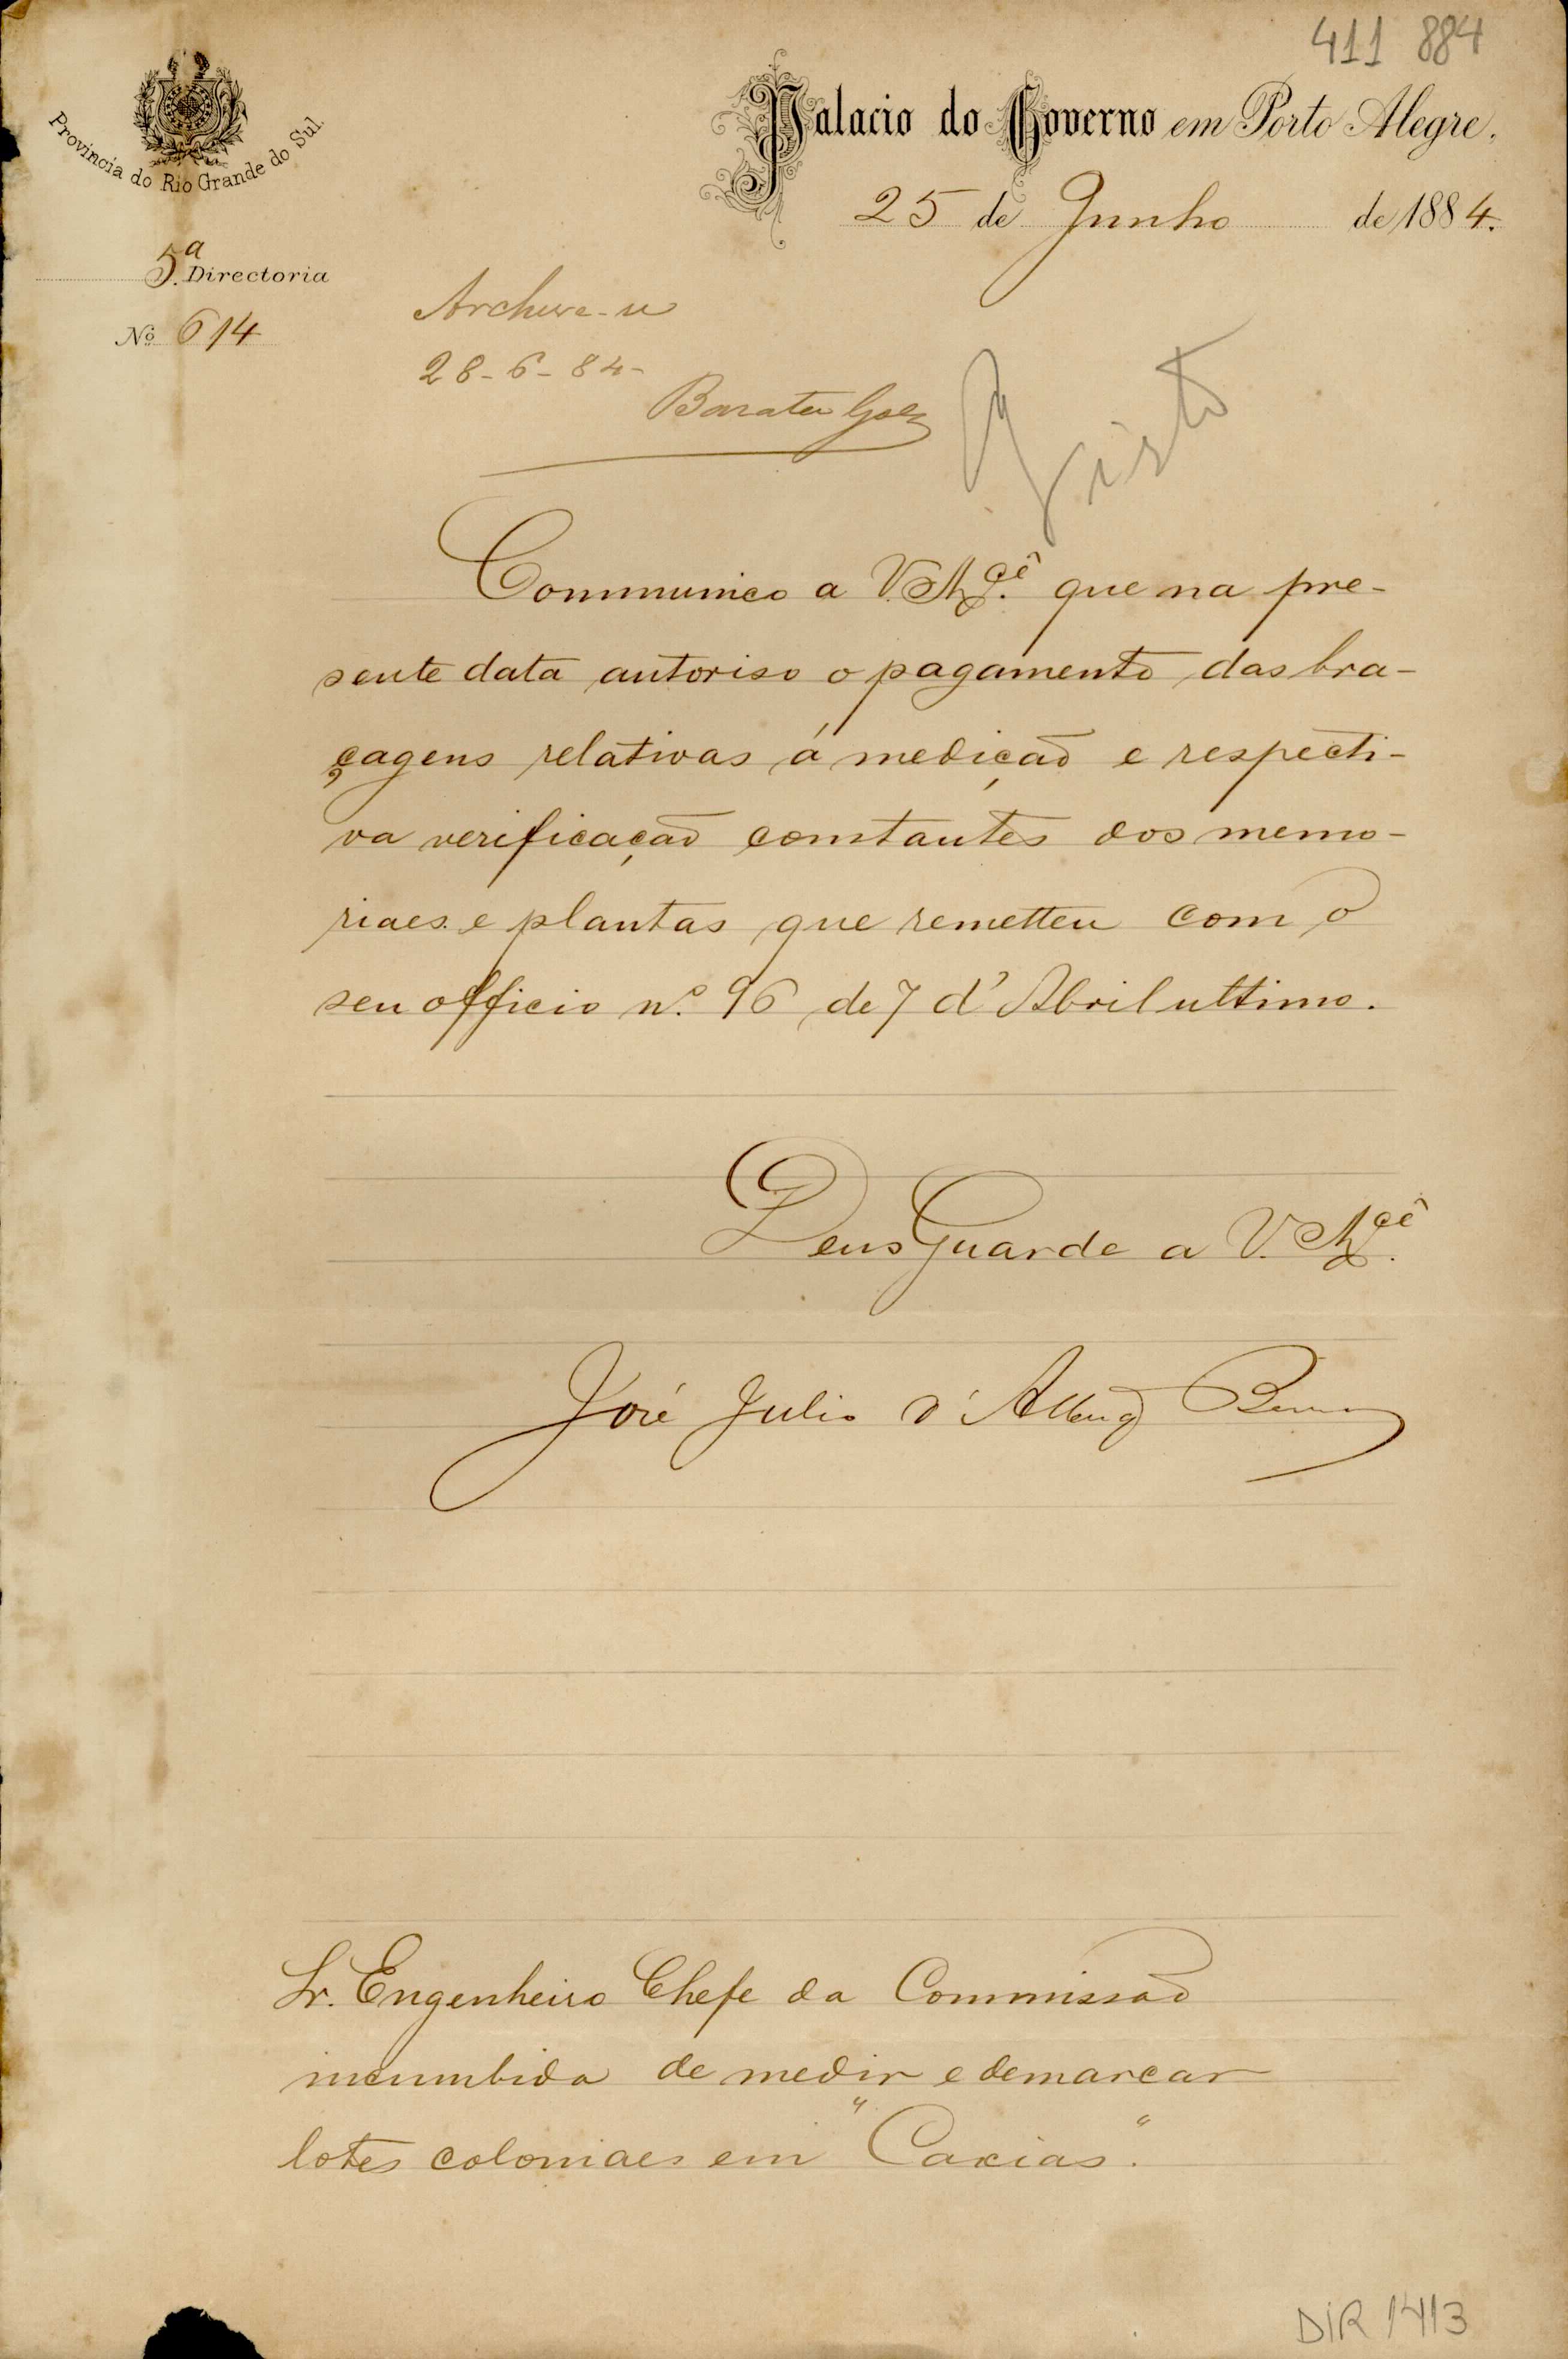 411 884
Provincia do Rio Grande do Sul.
Palacio do Governo em Porto Alegre.
25 de Junho de 1884.
5ª Directoria
Nº 614
Archive-se
28-6-84-
Barata Góes
Visto
Communico a V. Mcê. que na pre-
sente data autoriso o pagamento das bra-
çagens relativas á medição e respecti-
va verificação constantes dos memo-
riaes e plantas que remetteu com o
seu officio nº. 96 de 7 d'Abril ultimo.
Deus Guarde a V. Mcê.
José Julio d'Albuq Barros
Sr. Engenheiro Chefe da Commissão
incumbida de medir e demarcar
lotes coloniaes em "Caxias".
DIR 1413